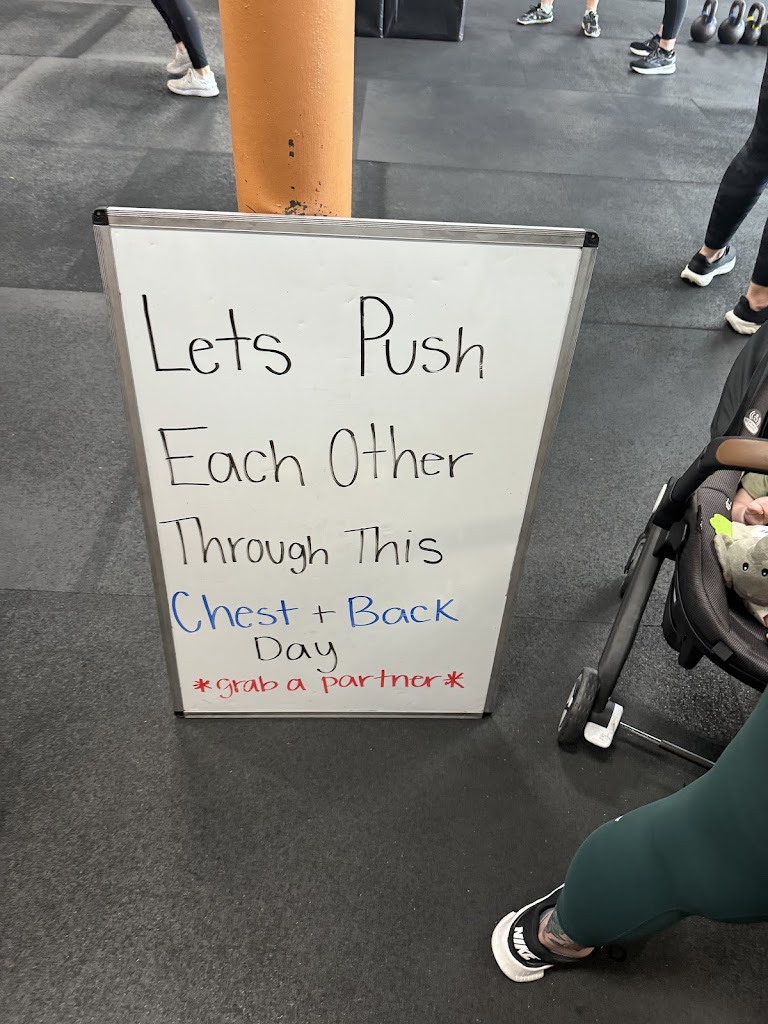 Lets Push
Each Other
Through This
Chest + Back
Day
*grab a partner*
NIKE